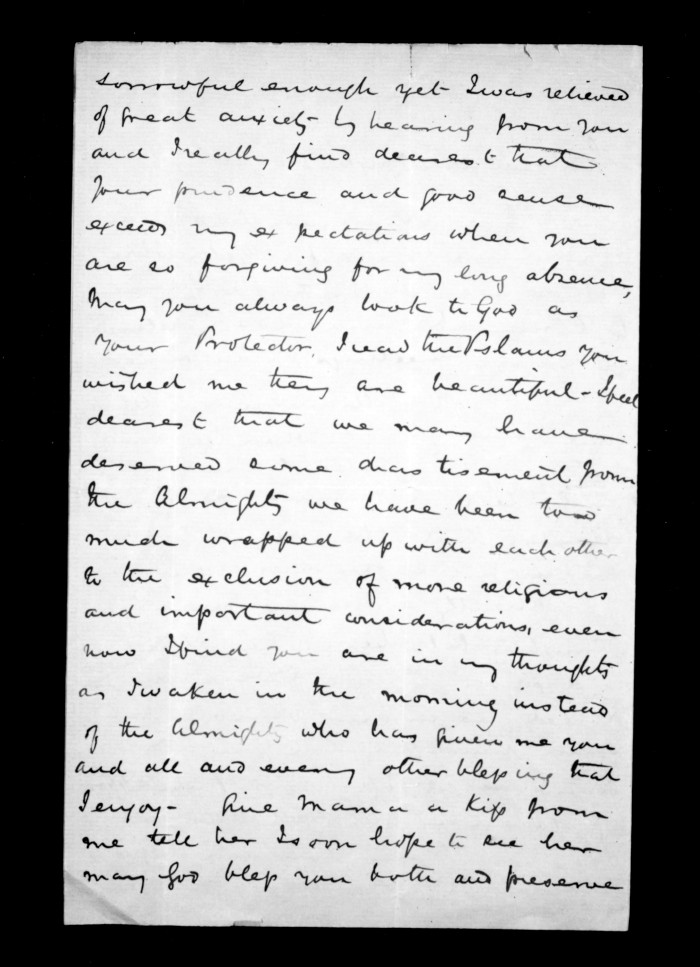 sorrowful enough yet I was relieved
of great anxiety by hearing from you
and I really find dearest that
your prudence and good sense
exceeds my expectations when you
are so forgiving for my long absence,
May you always look to God as
your Protector, I read the Pslams you
wished me they are beautiful - I feel
dearest that we may have
deserved some chastisement from
the Almighty we have been too
much wrapped up with each other
to the exclusion of more religious
and important considerations, even
now I find you are in my thoughts
as I waken in the morning instead
of the Almighty who has given me you
and all and every other blessing that
I enjoy - Give Mama a Kiss from
me tell her I soon hope to see her
may God bless you both and preserve